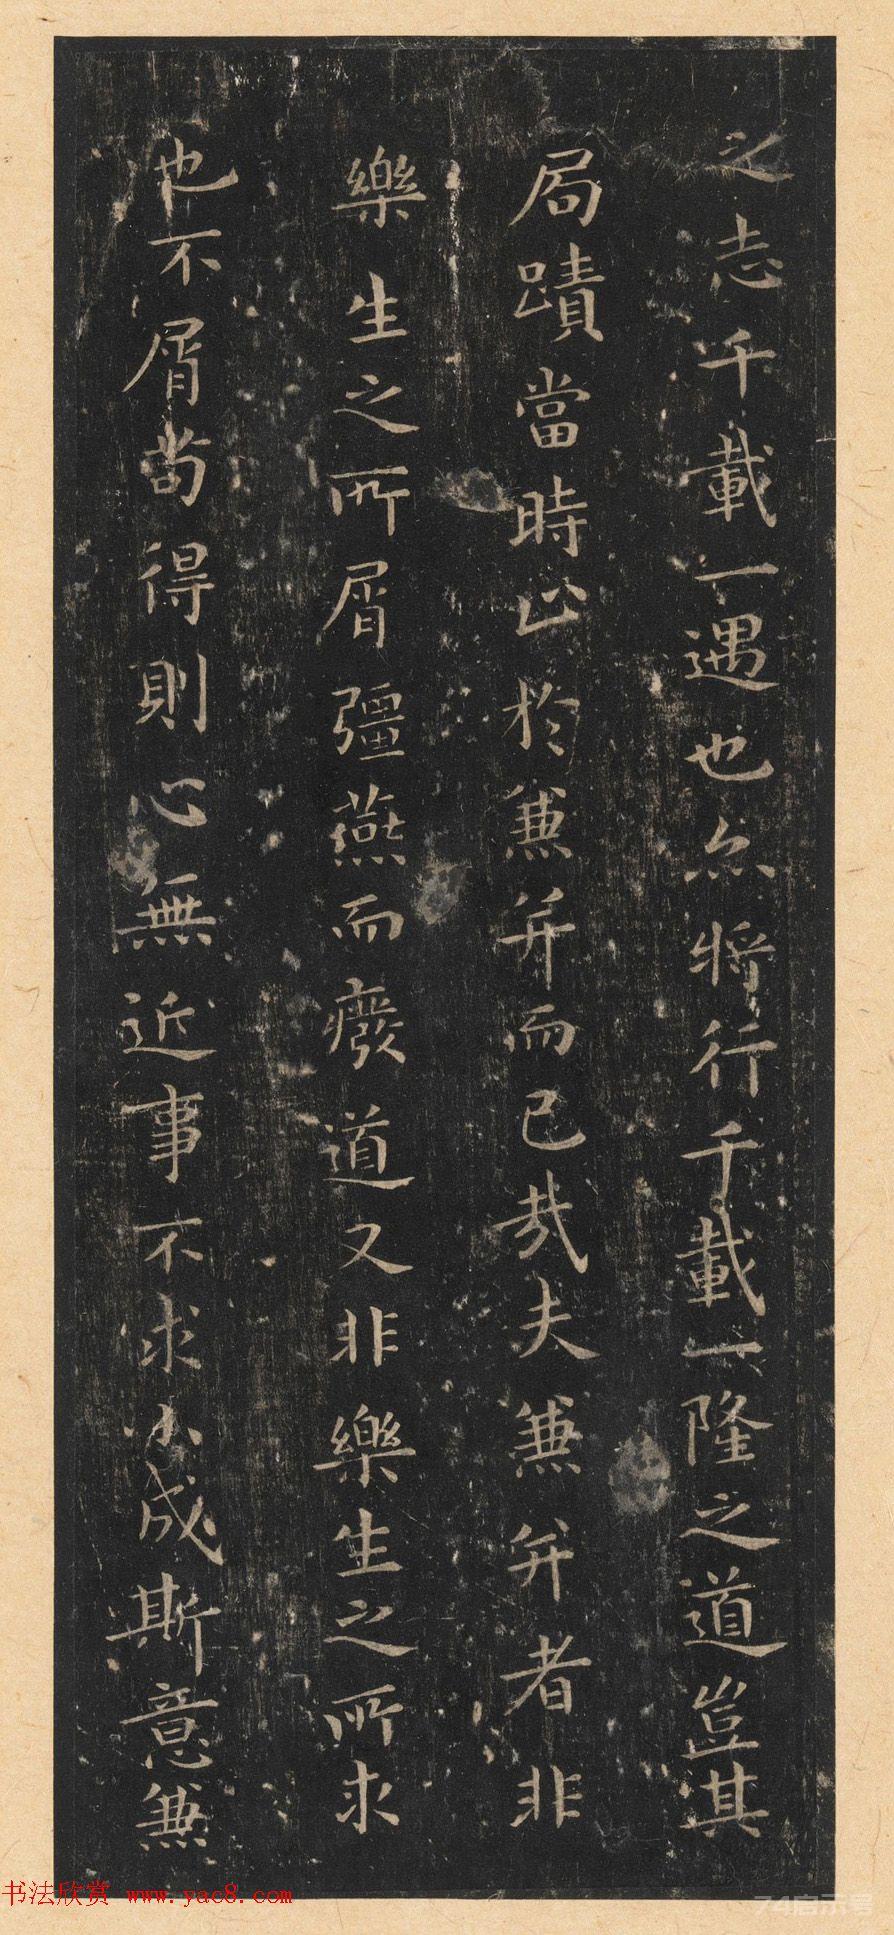 之志千載一遇也亦將行千載一隆之道豈其
局蹟當時止於兼并而已哉夫兼并者非
樂生之所屑彊燕而癈道又非樂生之所求
也不屑苟得則心無近事不求小成斯意兼
书法欣赏 www.yac8.com
74启示号